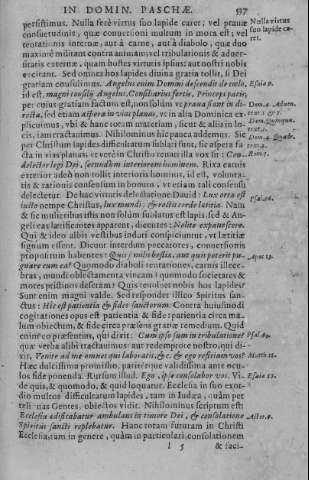 IN DOMIN. PASCHÆ.
persistimus. Nulla ferè virtus suo lapide caret; vel prauæ
Nulla virtus
suo lapide ca-
ret.
consuetudinis, quæ conuersioni multum in mora est; vel
tentationis internæ, aut à carne, aut à diabolo, quæ duo
maximè militant contra animam; vel tribulationis & aduer-
sitatis externæ, quam hostes virtutis instius; aut nostri nobis
excitant. Sed omnes hos lapides diuina gratia tollit, si Dei
gratiam consulimus. Angelus enim Domini descendit de cœlo,
id est, magni consilij Angelus, Consiliarius fortis, Princeps pacis,
Esaiæ 9.
per cuius gratiam factum est, non solùm vt praua sint in di-
recta, sed etiam aspera in vias planas, vt in alia Dominica ex-
plicuimus, vbi & hanc totam materiam, sicut & aliàs in lo-
cis, iam tractauimus. Nihilominus hîc pauca addemus. Sic
per Christum lapides difficultatum sublati sunt, sic aspera fa-
cta in vias planas, vt verè in Christo renati illa vox sit: Con-
delector legi Dei, secundùm interiorem hominem.
Rom. 7.
exterior adeò non tollit interioris hominis, id est, volunta-
tis & rationis consensum in bonum, vt etiam tali consensu
delectetur. De hac virtutis delectatione Dauid: Lux orta est
iusto nempe Christus, lux mundi; & rectis corde lætitia. Nam
& sic mulieribus istis non solùm sublatus est lapis, sed & An-
geli eas lætificantes apparent, dicentes: Nolite expauescere.
Qui & ideo albis vestibus induti conspiciuntur, vt lætitiæ
signum essent. Dicunt interdum peccatores, conuersionis
propositum habentes: Quis similis bestiæ, aut quis poterit pu-
Apoc. 13.
gnare cum ea? Quomodo diaboli tentationes, carnis illece-
bras, mundi oblectamenta vincam? quomodo societates &
mores pristinos deseram? Quis reuoluet nobis hos lapides?
Sunt enim magni valde. Sed responder illico Spiritus san-
ctus: Hic est patientia & fides sanctorum. Contra huiusmodi
cogitationes opus est patientia & fide: patientia circa ma-
lum obiectum, & fide circa præsens gratiæ remedium. Quid
enim eo præsentius, qui dixit: Cum ipso sum in tribulatione?
quæ verba alibi tractauimus: aut redemptore nostro, qui di-
xit, Venite ad me omnes qui laboratis, &c. & ego reficiam vos?
Matth. 11.
Hæc dulcissima promissio, pariterque validissima ante ocu-
los fide ponenda. Rursum illud, Ego, ipse consolabor vos. Vi-
de quis, & quomodo, & quid loquatur. Ecclesia in suo exor-
dio multos difficultatum lapides, tam in Iudæa, quàm per
Gentes, obiectos vidit. Nihilominus scriptum est
Ecclesia ædificabatur ambulans in timore Dei, & consolatione
Spiritus sancti replebatur. Hanc totam futuram in Christi
Ecclesia, tam in genere, quàm in particulari, consolationem
l 5
& faci-